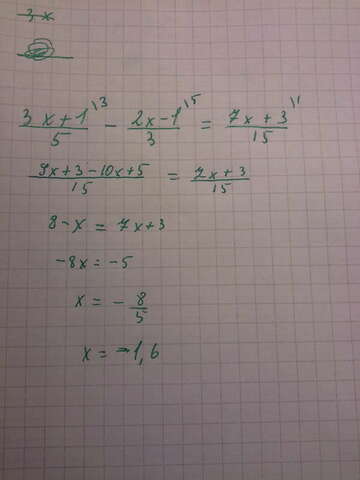 3x
3x+1\3 / 5 - 2x-1\5 / 3 = 7x+3\1 / 15
9x+3-10x+5 / 15 = 7x+3 / 15
8-x = 7x+3
-8x = -5
x = - 8/5
x = -1,6